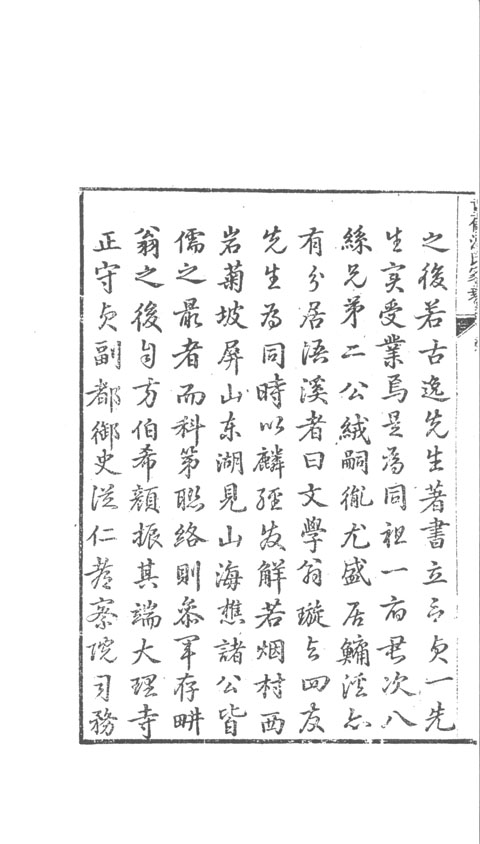 之後若古逸先生著書立言貞一先
生实受業焉是為同祖一府君次八
絲兄弟二公絨嗣胤尤盛居鱅溪亦
有分居浯溪者曰文學翁璇与四友
先生為同時以麟經发解若烟村西
岩菊坡屏山东湖見山海樵諸公皆
儒之最者而科第聯絡則參军存畊
翁之後自方伯希顏振其端大理寺
正守貞副都御史從仁都察院司務